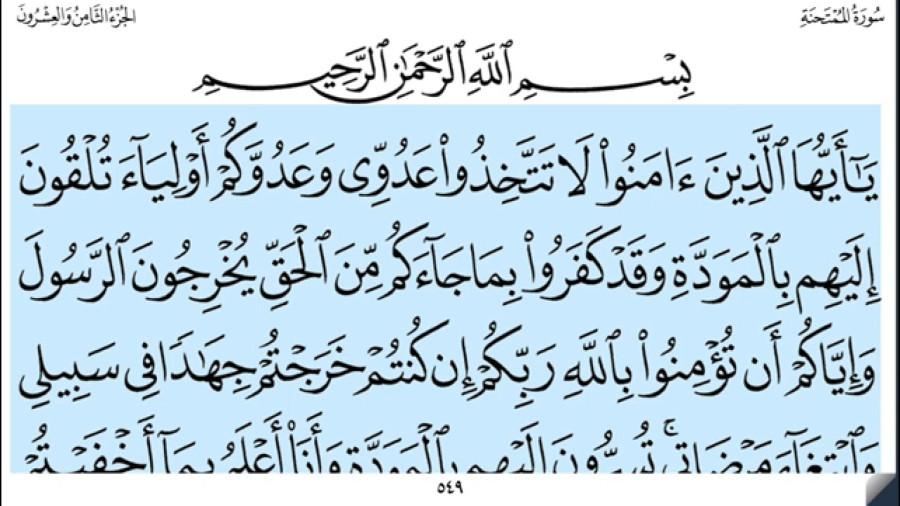 سُورَةُ المُمْتَحنَةِ
الجُزْءُ الثَّامِنُ وَالعِشْرُونَ
بِسْمِ ٱللَّهِ ٱلرَّحْمَٰنِ ٱلرَّحِيمِ
يَـٰٓأَيُّهَا ٱلَّذِينَ ءَامَنُوا۟ لَا تَتَّخِذُوا۟ عَدُوِّى وَعَدُوَّكُمْ أَوْلِيَآءَ تُلْقُونَ
إِلَيْهِم بِٱلْمَوَدَّةِ وَقَدْ كَفَرُوا۟ بِمَا جَآءَكُم مِّنَ ٱلْحَقِّ يُخْرِجُونَ ٱلرَّسُولَ
وَإِيَّاكُمْ أَن تُؤْمِنُوا۟ بِٱللَّهِ رَبِّكُمْ إِن كُنتُمْ خَرَجْتُمْ جِهَـٰدًا فِى سَبِيلِى
وَٱبْتِغَآءَ مَرْضَاتِى ۚ تُسِرُّونَ إِلَيْهِم بِٱلْمَوَدَّةِ وَأَنَا۠ أَعْلَمُ بِمَآ أَخْفَيْتُمْ
٥٤٩